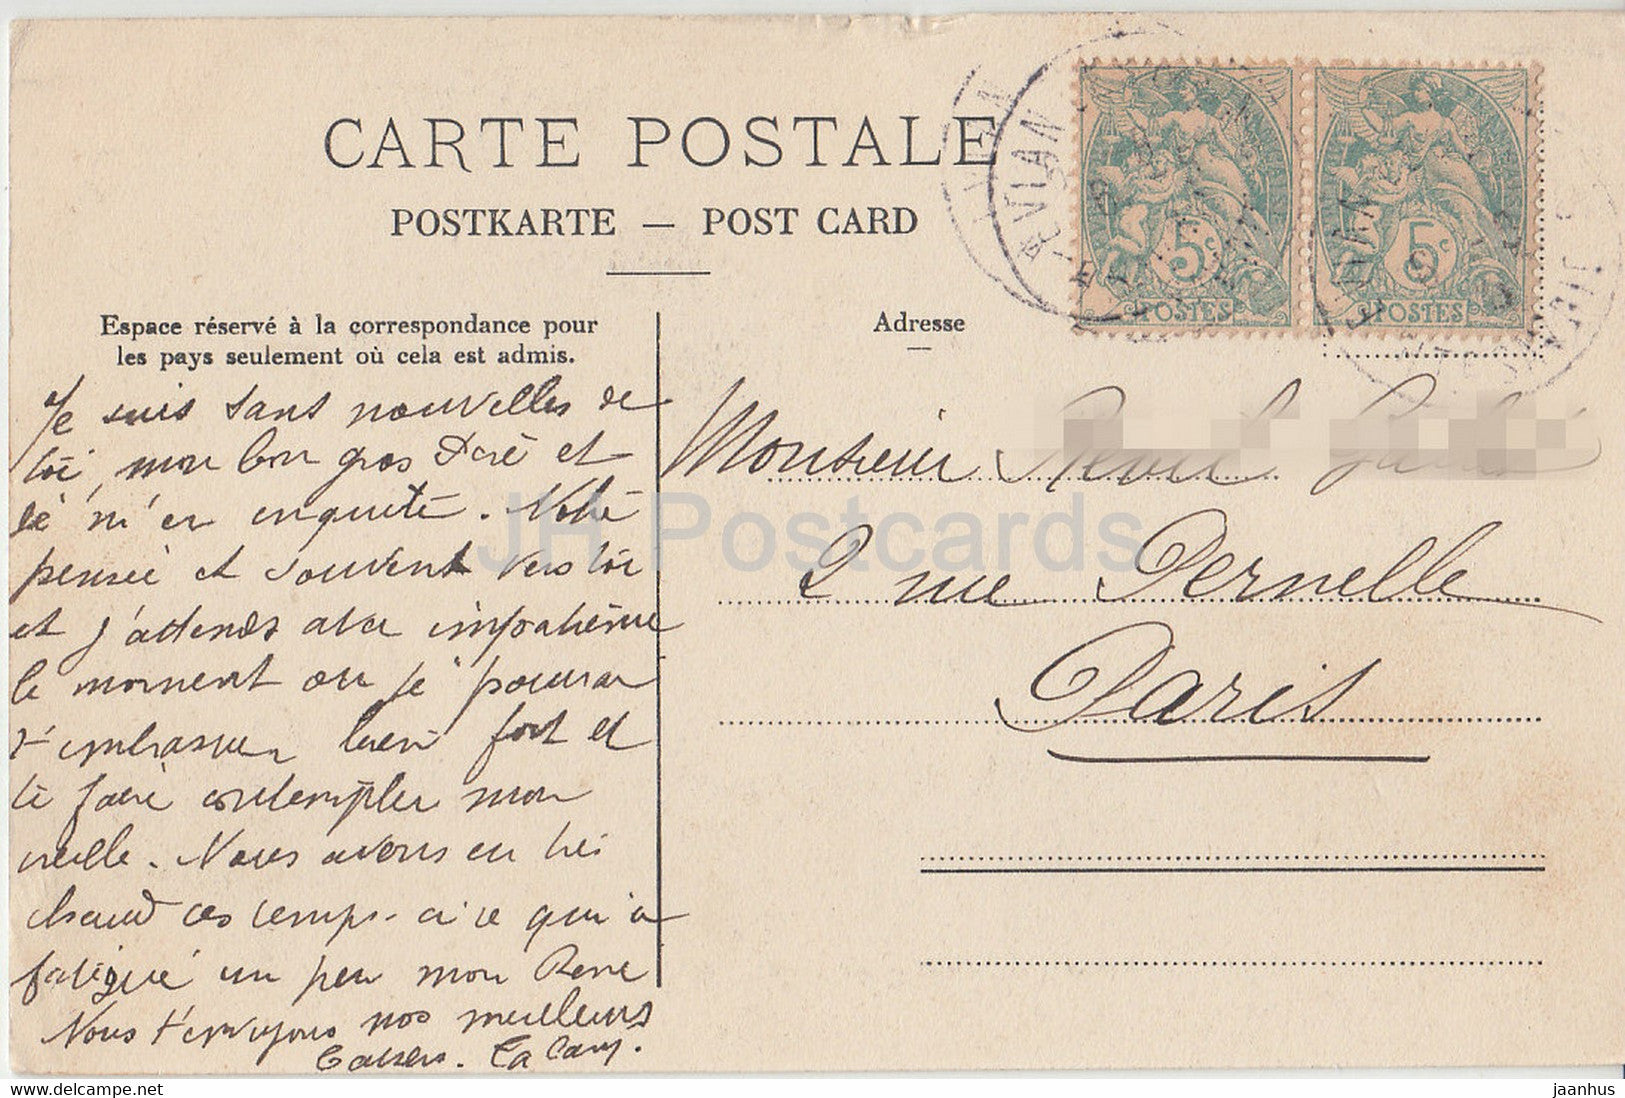 CARTE POSTALE
POSTKARTE — POST CARD
Espace réservé à la correspondance pour
les pays seulement où cela est admis.
Adresse
Je suis sans nouvelles de
toi, mon bon gros et
m'en inquiète. Notre
pensée et souvent vers toi
et j'attends avec impatience
le moment ou je pourrai
t'embrasser bien fort et
te faire contempler mon
Nous avons eu très
chaud ces temps-ci ce qui a
fatigué un peu mon René
Nous t'envoyons nos meilleurs
baisers.
Monsieur
2 rue Pernelle
Paris
5c 5c
POSTES POSTES
EVIAN
JH Postcards
jaanhus